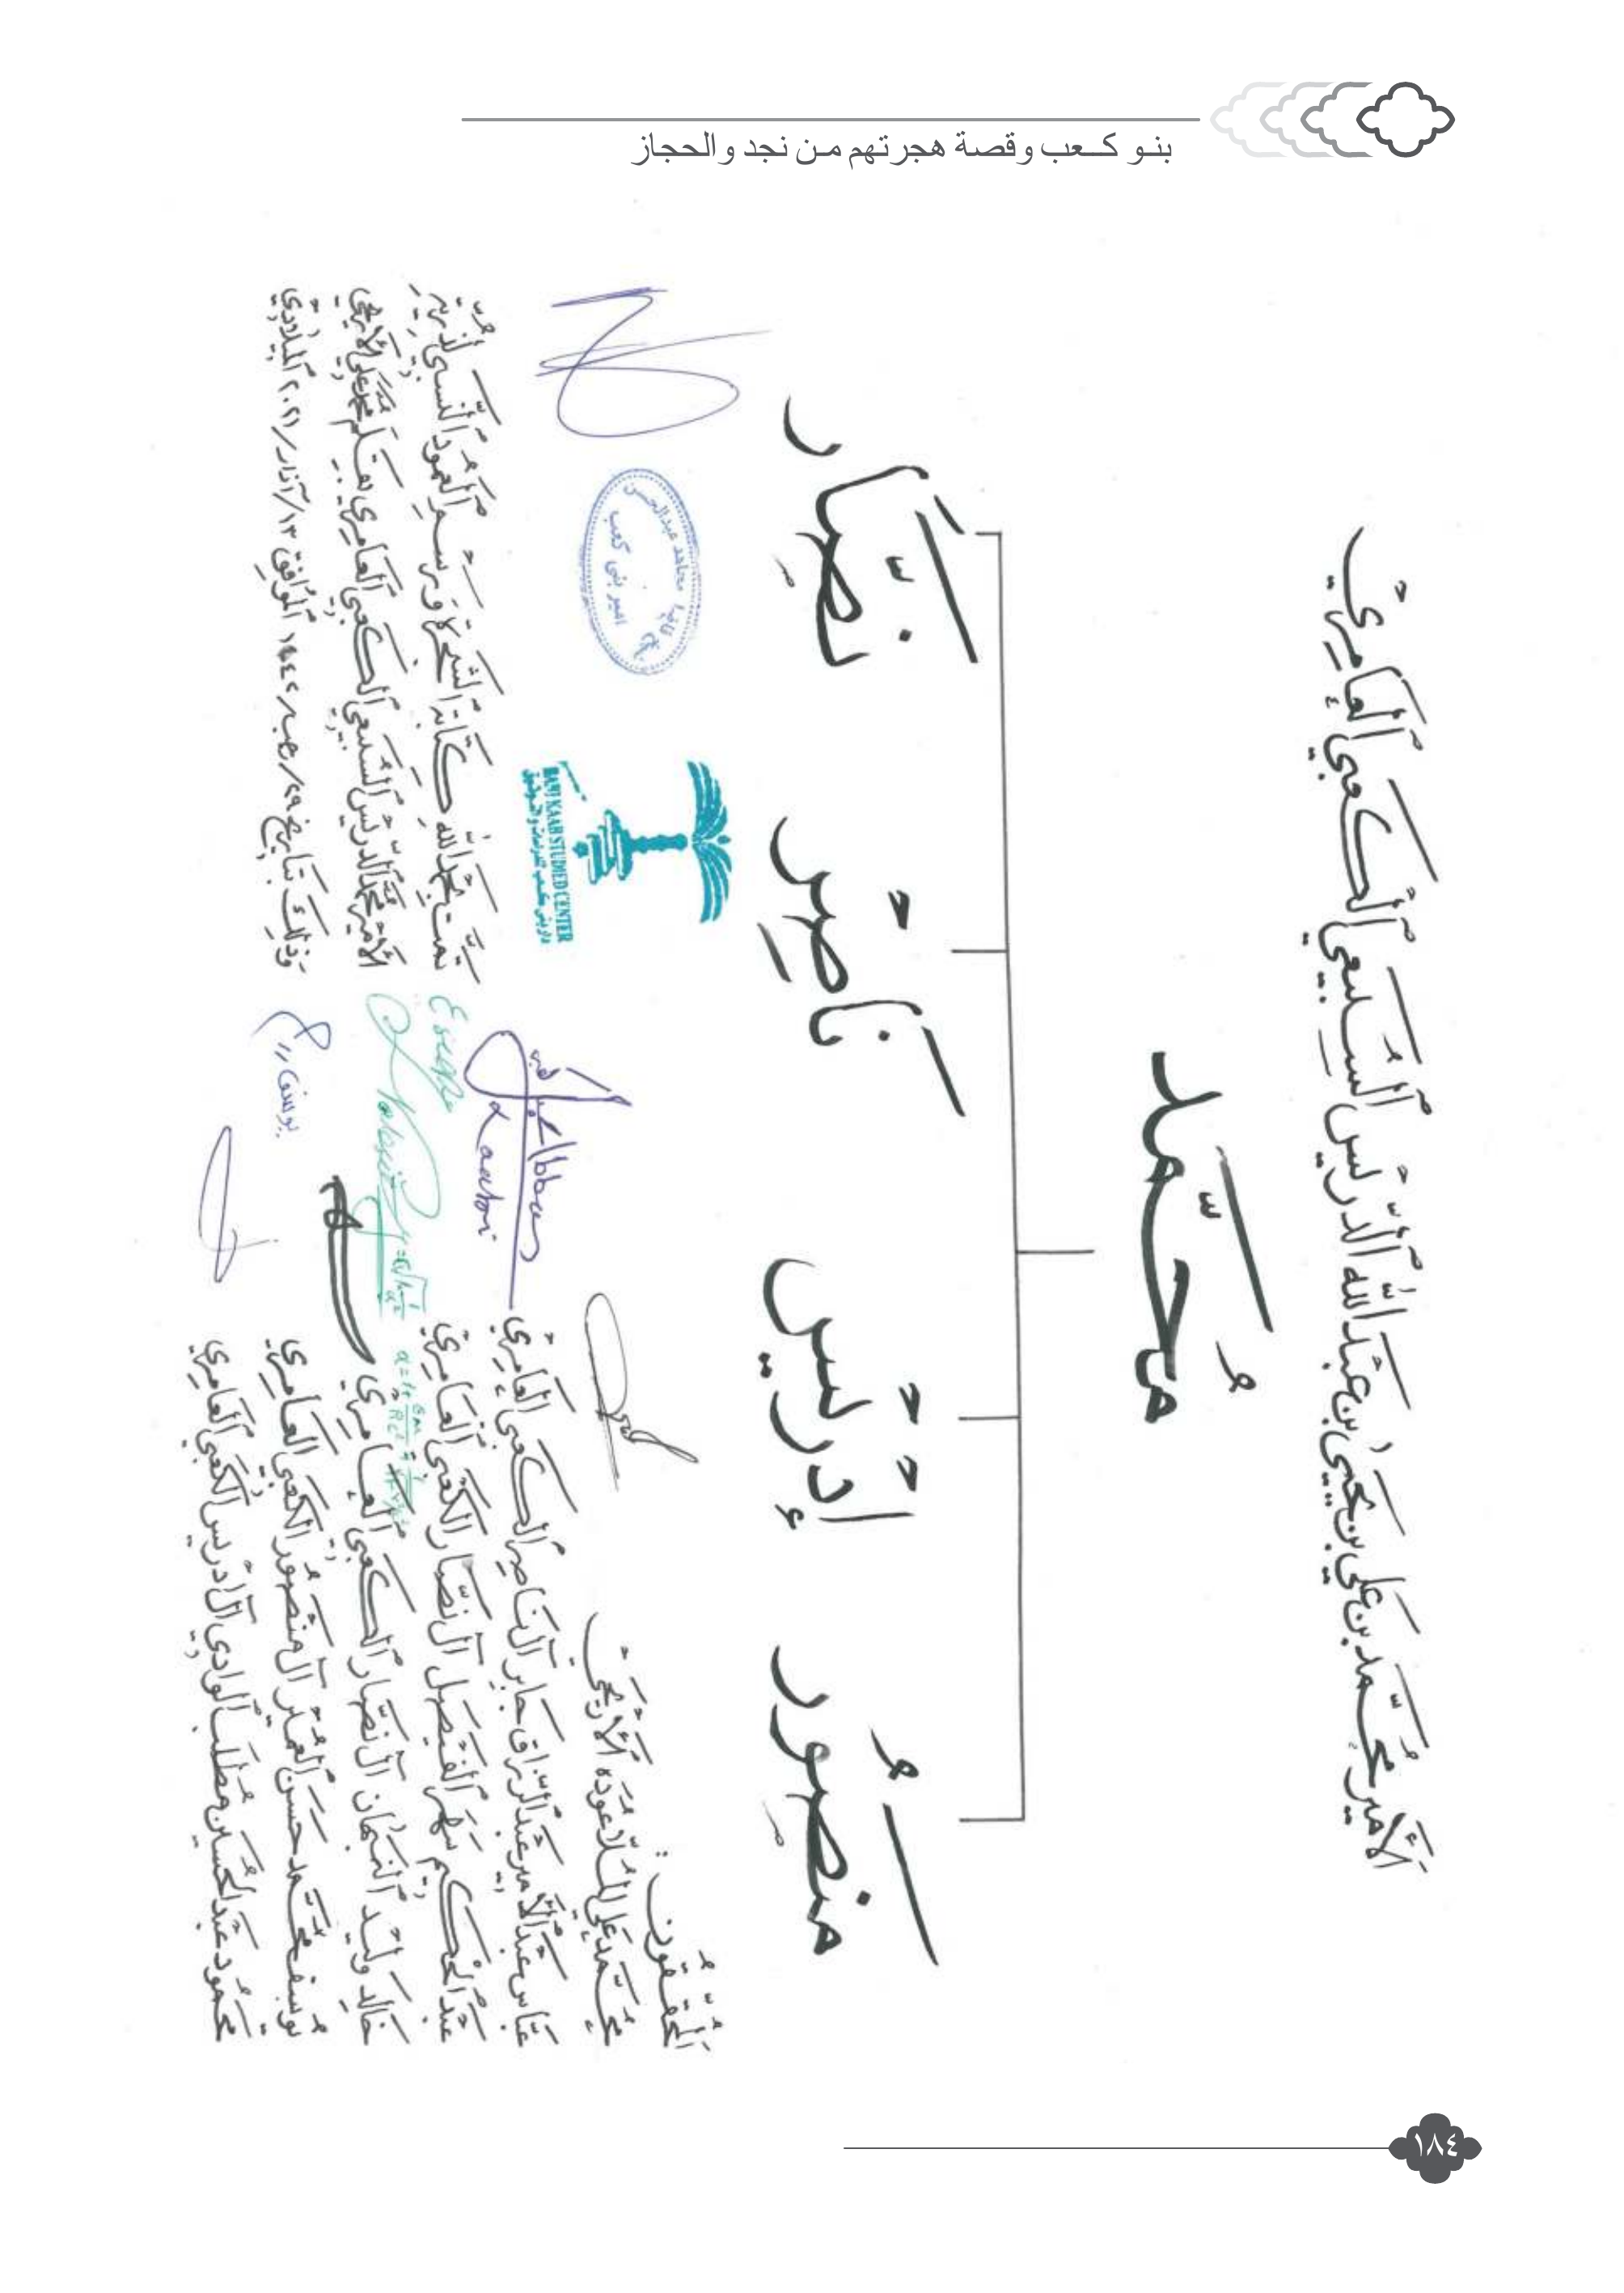 بنو كعب وقصة هجرتهم من نجد والحجاز
الأمير محمد بن علي بن يحيى بن عبد الله الدريس الشليعي الكعبي العامري
محمد
منصور إدريس ناصر نصار
المحققون:
محمد علي الملا عوده الأريحي
عباس عبد الأمير عبد الرزاق جابر آل ناصر الكعبي العامري
عبد الحكيم سهر الفيصل آل نصار الكعبي العامري
خالد وليد النبهان آل نصار الكعبي العامري
يوسف محمد حسن العماير آل منصور الكعبي العامري
محمود عبد الحسين مطلب الوادي آل ادريس الكعبي العامري
تمت بحمد الله كتابة الشجرة ورسم العمود النسبي لذرية
الأمير محمد الدريس الشليعي الكعبي العامري بقلم محمد علي الأريحي
وذلك بتاريخ ٢٩/رجب/١٤٤٢ الموافق ١٣/آذار/٢٠٢١ الميلادي
مجاهد عبدالحسن
امير بني كعب
BANI KAAB STUDIED CENTER
Abbas
يوسف
١٨٤